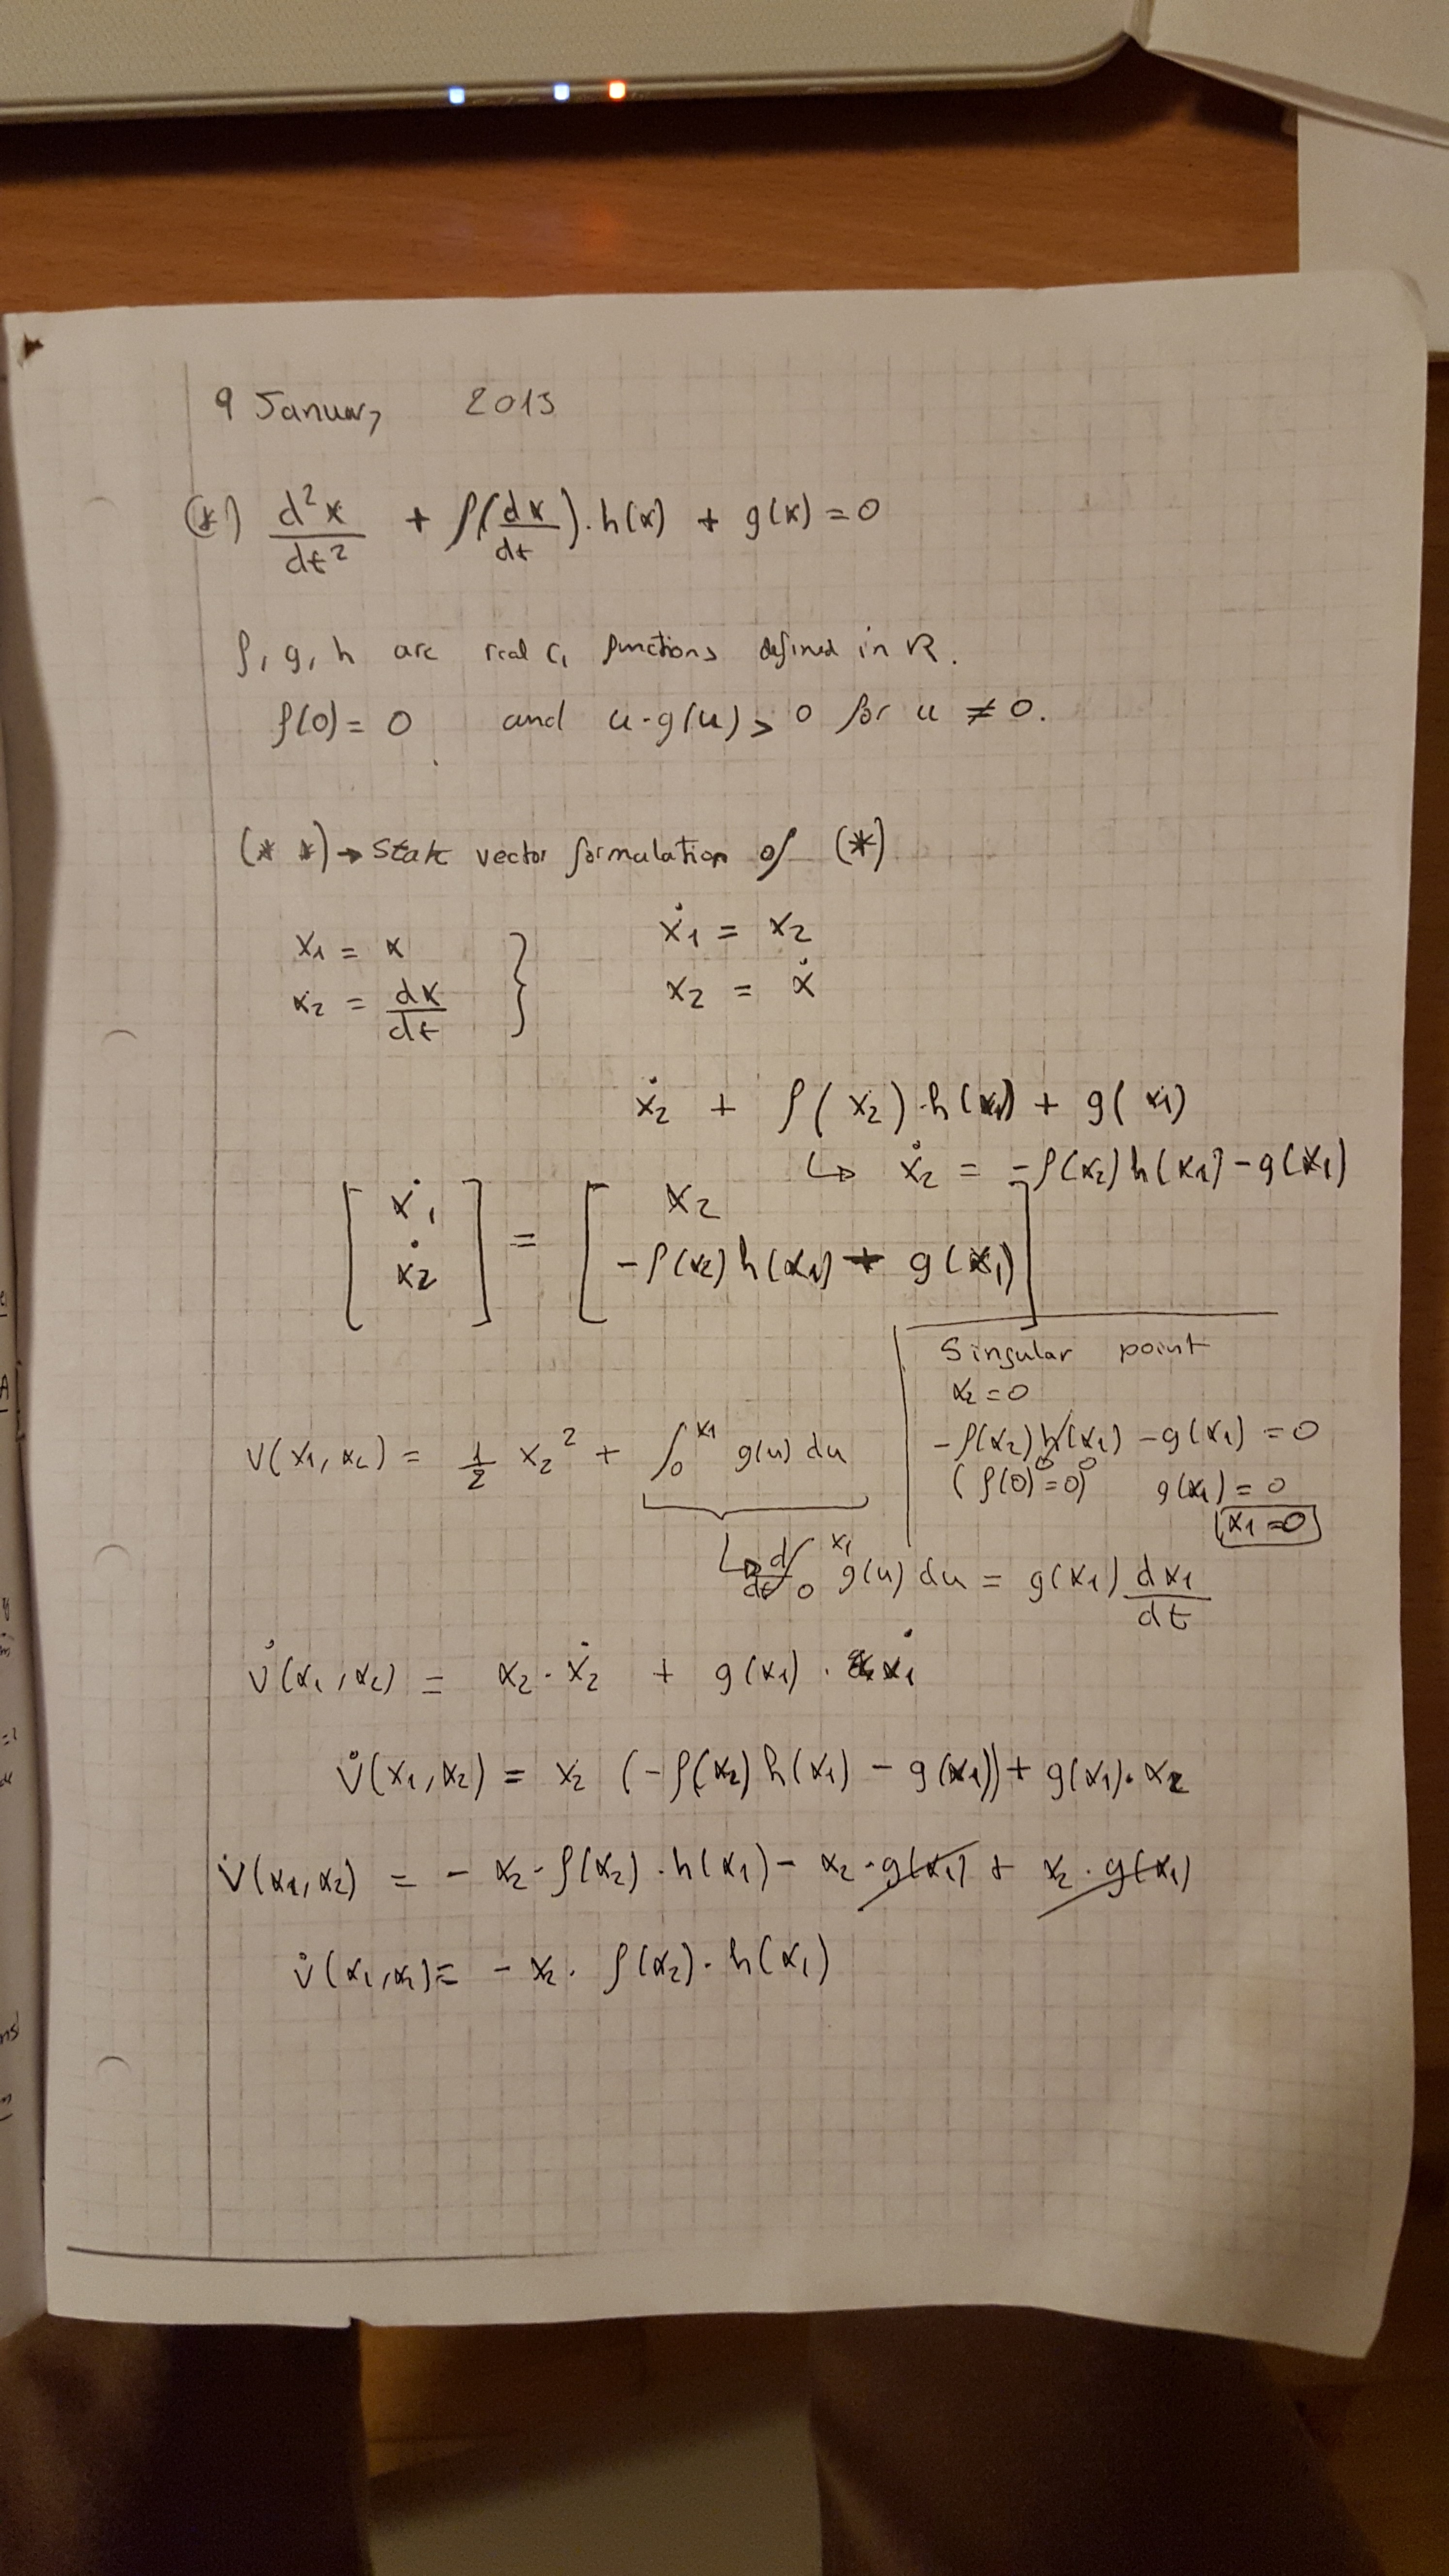 9 January 2013
(*) d²x/dt² + f(dx/dt)·h(x) + g(x) = 0
f, g, h are real C₁ functions defined in R.
f(0) = 0 and u·g(u) > 0 for u ≠ 0.
(* *) → State vector formulation of (*)
x₁ = x } ẋ₁ = x₂
x₂ = dx/dt } x₂ = ẋ
ẋ₂ + f(x₂)·h(x₁) + g(x₁)
↳ ẋ₂ = -f(x₂)h(x₁) - g(x₁)
[ẋ₁] = [x₂]
[ẋ₂] = [-f(x₂)h(x₁) - g(x₁)]
Singular point
x₂ = 0
-f(x₂)h(x₁) - g(x₁) = 0
(f(0) = 0) g(x₁) = 0
x₁ = 0
V(x₁, x₂) = 1/2 x₂² + ∫₀^x₁ g(u) du
↳ d/dt ∫₀^x₁ g(u) du = g(x₁) dx₁/dt
V̇(x₁, x₂) = x₂·ẋ₂ + g(x₁)·ẋ₁
V̇(x₁, x₂) = x₂ (-f(x₂)h(x₁) - g(x₁)) + g(x₁)·x₂
V̇(x₁, x₂) = - x₂·f(x₂)·h(x₁) - x₂·g(x₁) + x₂·g(x₁)
V̇(x₁, x₂) = - x₂·f(x₂)·h(x₁)